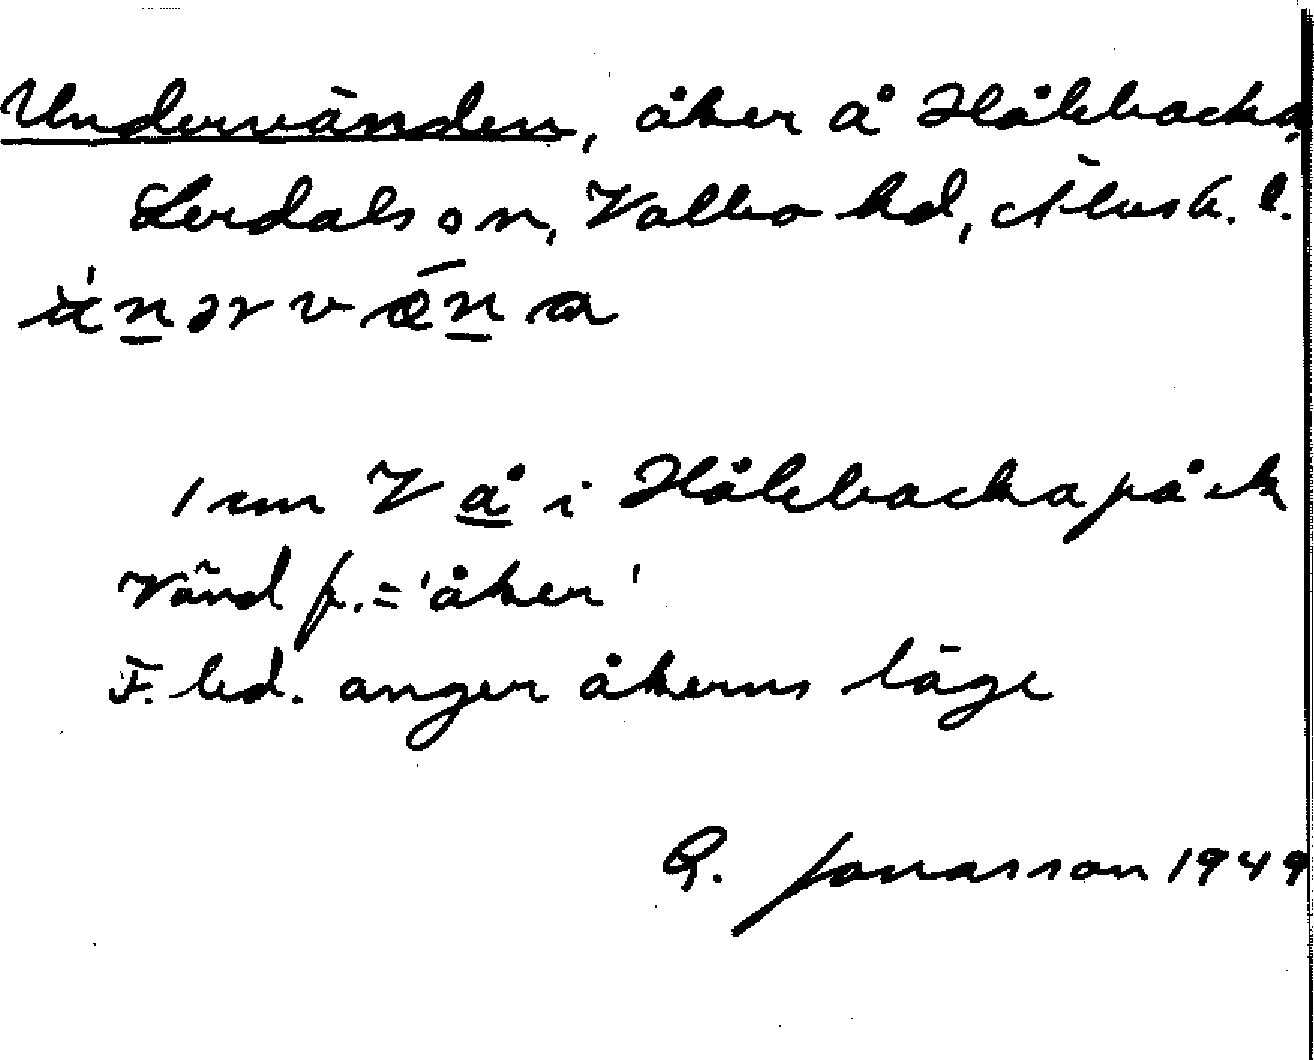 Undervänden, åker å Hålebacka,
Lerdals sn, Valbo hd, Älvsb. l.
1 cm V å i Hålebacka på ek
Vänd f. = 'åker'
F. led. anger åkerns läge
G. Jonasson 1949